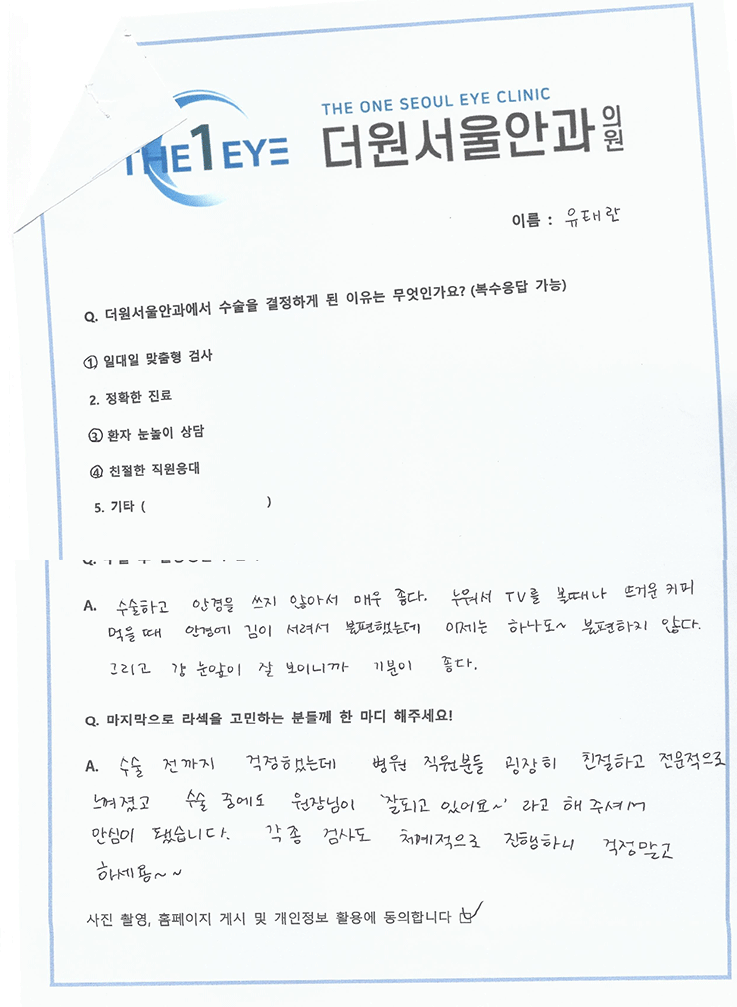 THE ONE SEOUL EYE CLINIC
THE1EYE 더원서울안과의원
이름 : 유태란
Q. 더원서울안과에서 수술을 결정하게 된 이유는 무엇인가요? (복수응답 가능)
① 일대일 맞춤형 검사
2. 정확한 진료
③ 환자 눈높이 상담
④ 친절한 직원응대
5. 기타 ( )
A. 수술하고 안경을 쓰지 않아서 매우 좋다. 누워서 TV를 볼때나 뜨거운 커피
먹을 때 안경에 김이 서려서 불편했는데 이제는 하나도~ 불편하지 않다.
그리고 걍 눈앞이 잘 보이니까 기분이 좋다.
Q. 마지막으로 라섹을 고민하는 분들께 한 마디 해주세요!
A. 수술 전까지 걱정했는데 병원 직원분들 굉장히 친절하고 전문적으로
느껴졌고 수술 중에도 원장님이 '잘되고 있어요~' 라고 해 주셔서
안심이 됐습니다. 각종 검사도 체계적으로 진행하니 걱정말고
하세용~~
사진 촬영, 홈페이지 게시 및 개인정보 활용에 동의합니다 ☑